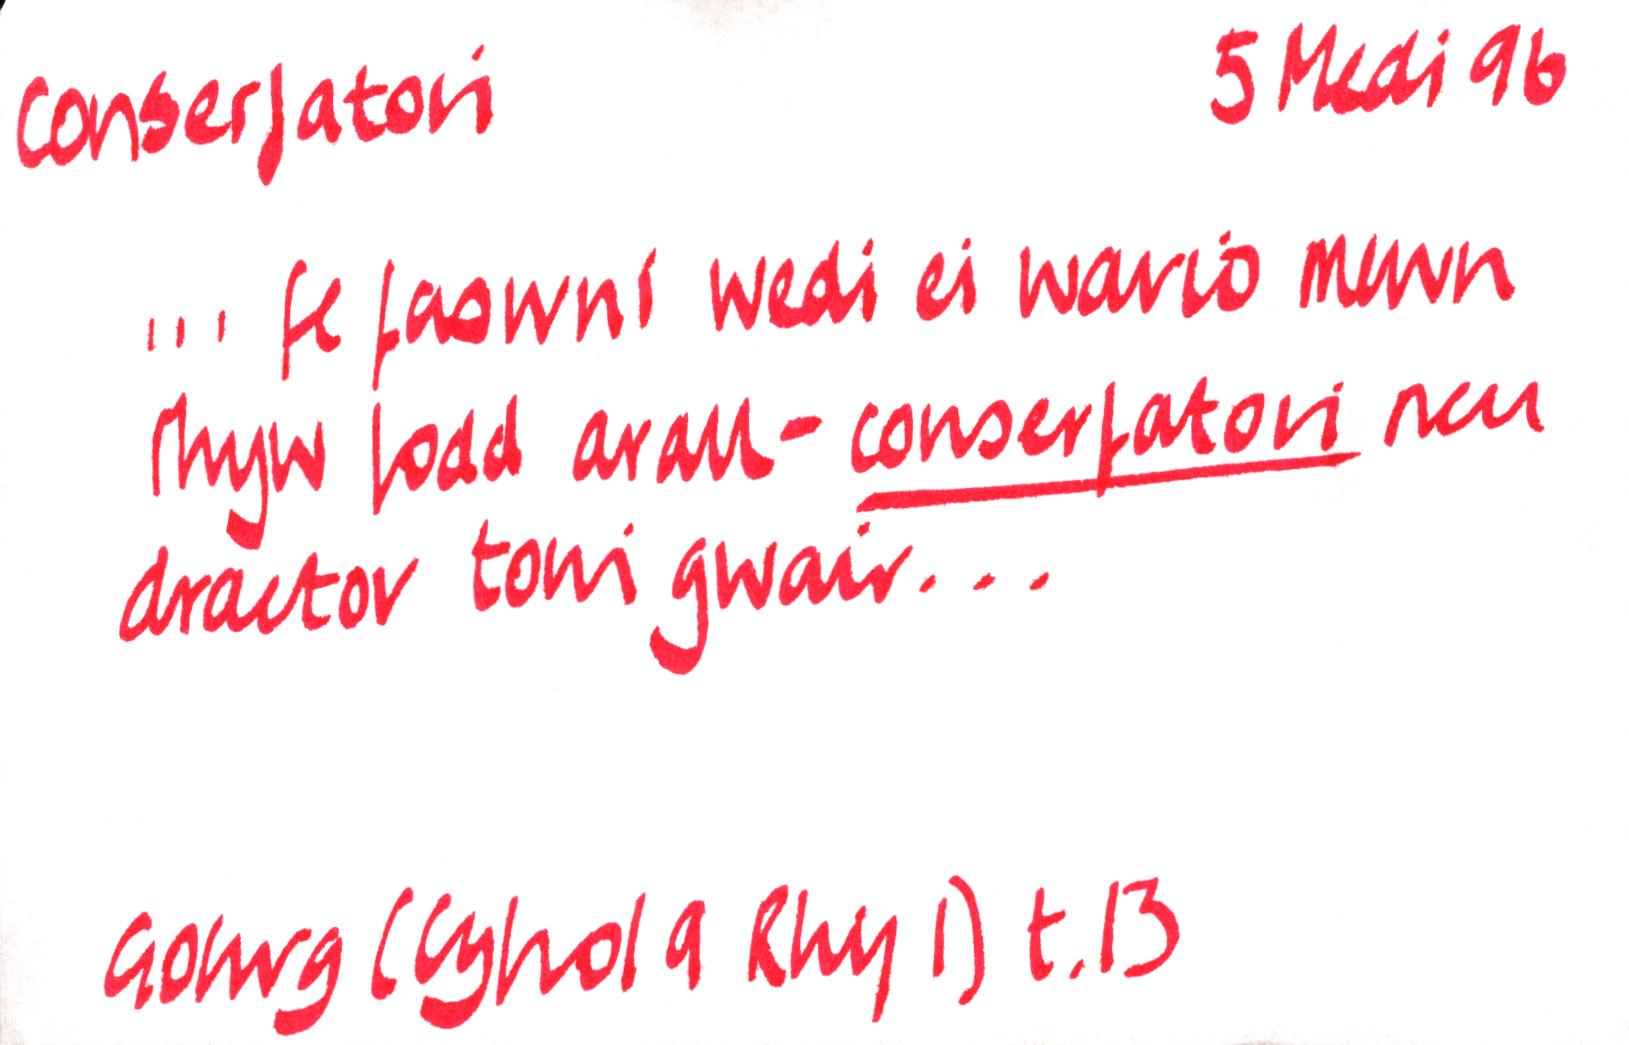 Conserfatori 5 Medi 96
... fe faswni wedi ei wario mewn
rhyw fodd arall - conserfatori neu
dractor torri gwair...
Golwg (Cyfrol 9 Rhif 1) t.13